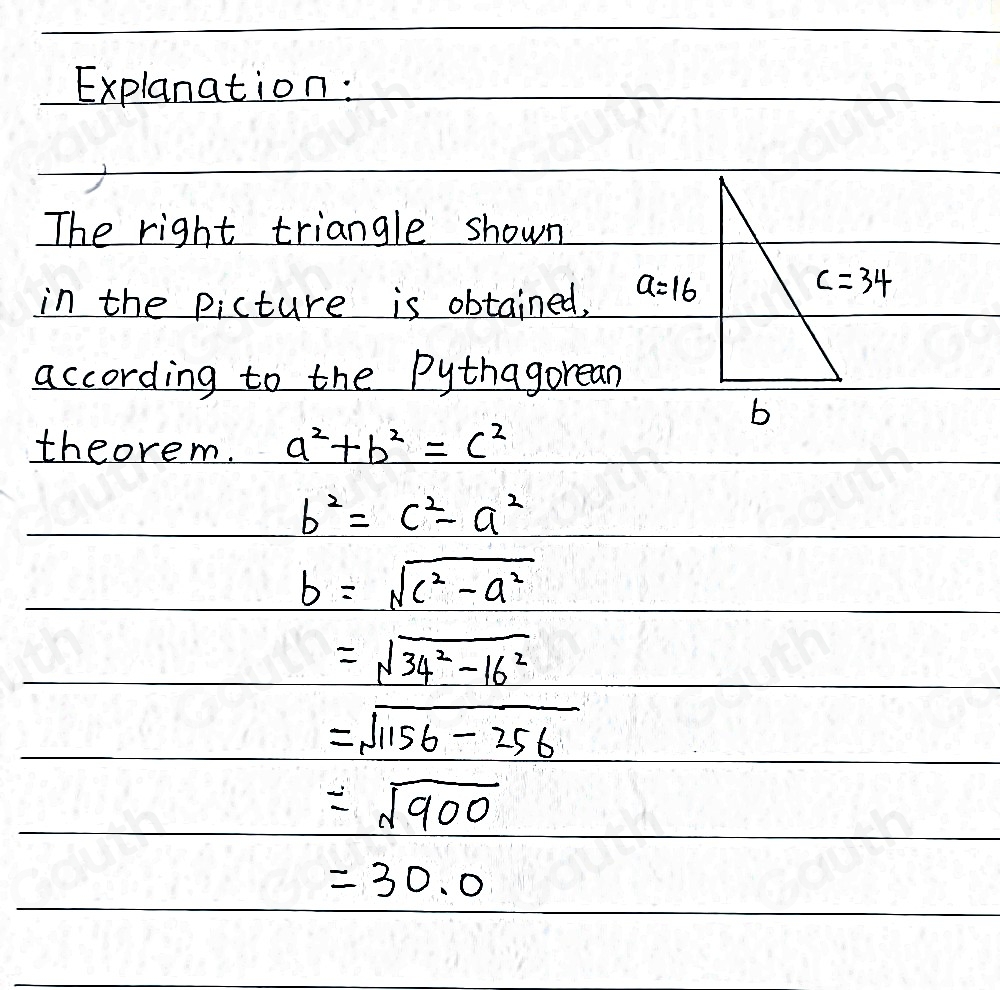 Explanation:
The right triangle shown
in the picture is obtained,
a=16
c=34
according to the Pythagorean
b
theorem. a²+b² = c²
b² = c² - a²
b = √(c² - a²)
= √(34² - 16²)
= √(1156 - 256)
= √900
= 30.0
Gauth